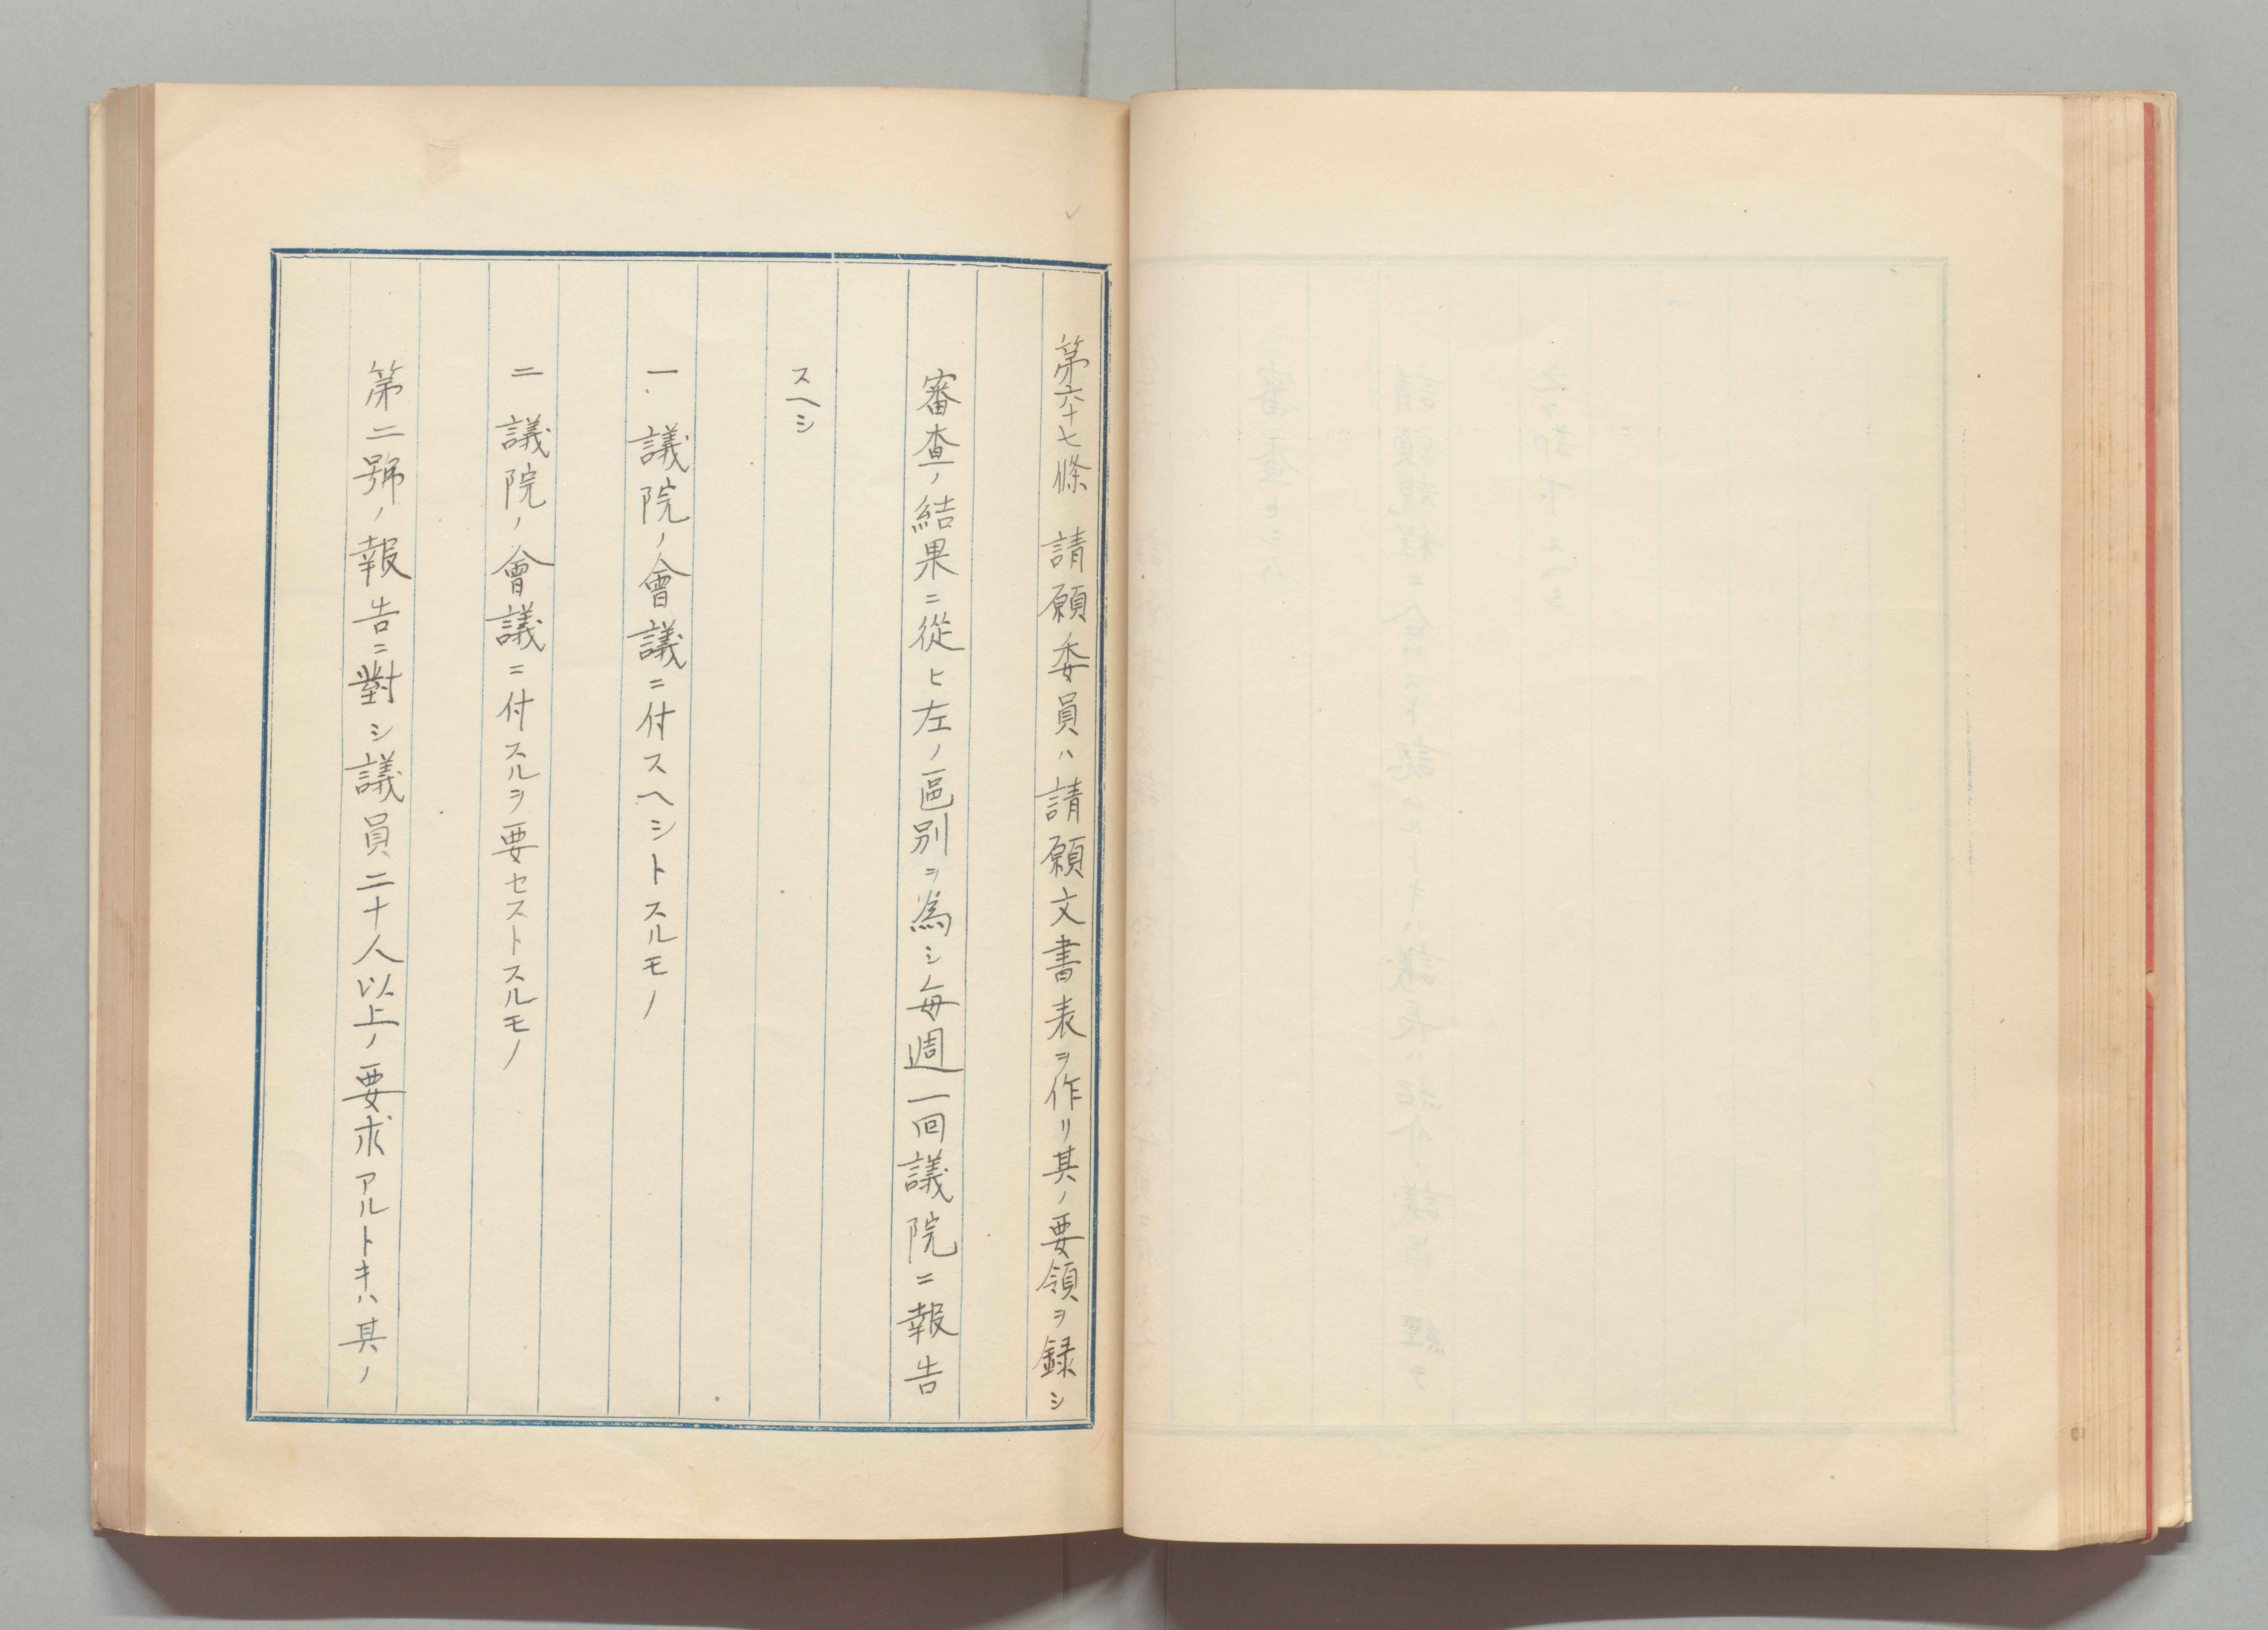 第六十七條 請願委員ハ請願文書表ヲ作リ其ノ要領ヲ録シ
審査ノ結果ニ從ヒ左ノ區別ヲ為シ毎週一回議院ニ報告
スヘシ
一、議院ノ會議ニ付スヘシトスルモノ
二 議院ノ會議ニ付スルヲ要セストスルモノ
第二號ノ報告ニ對シ議員二十人以上ノ要求アルトキハ其ノ